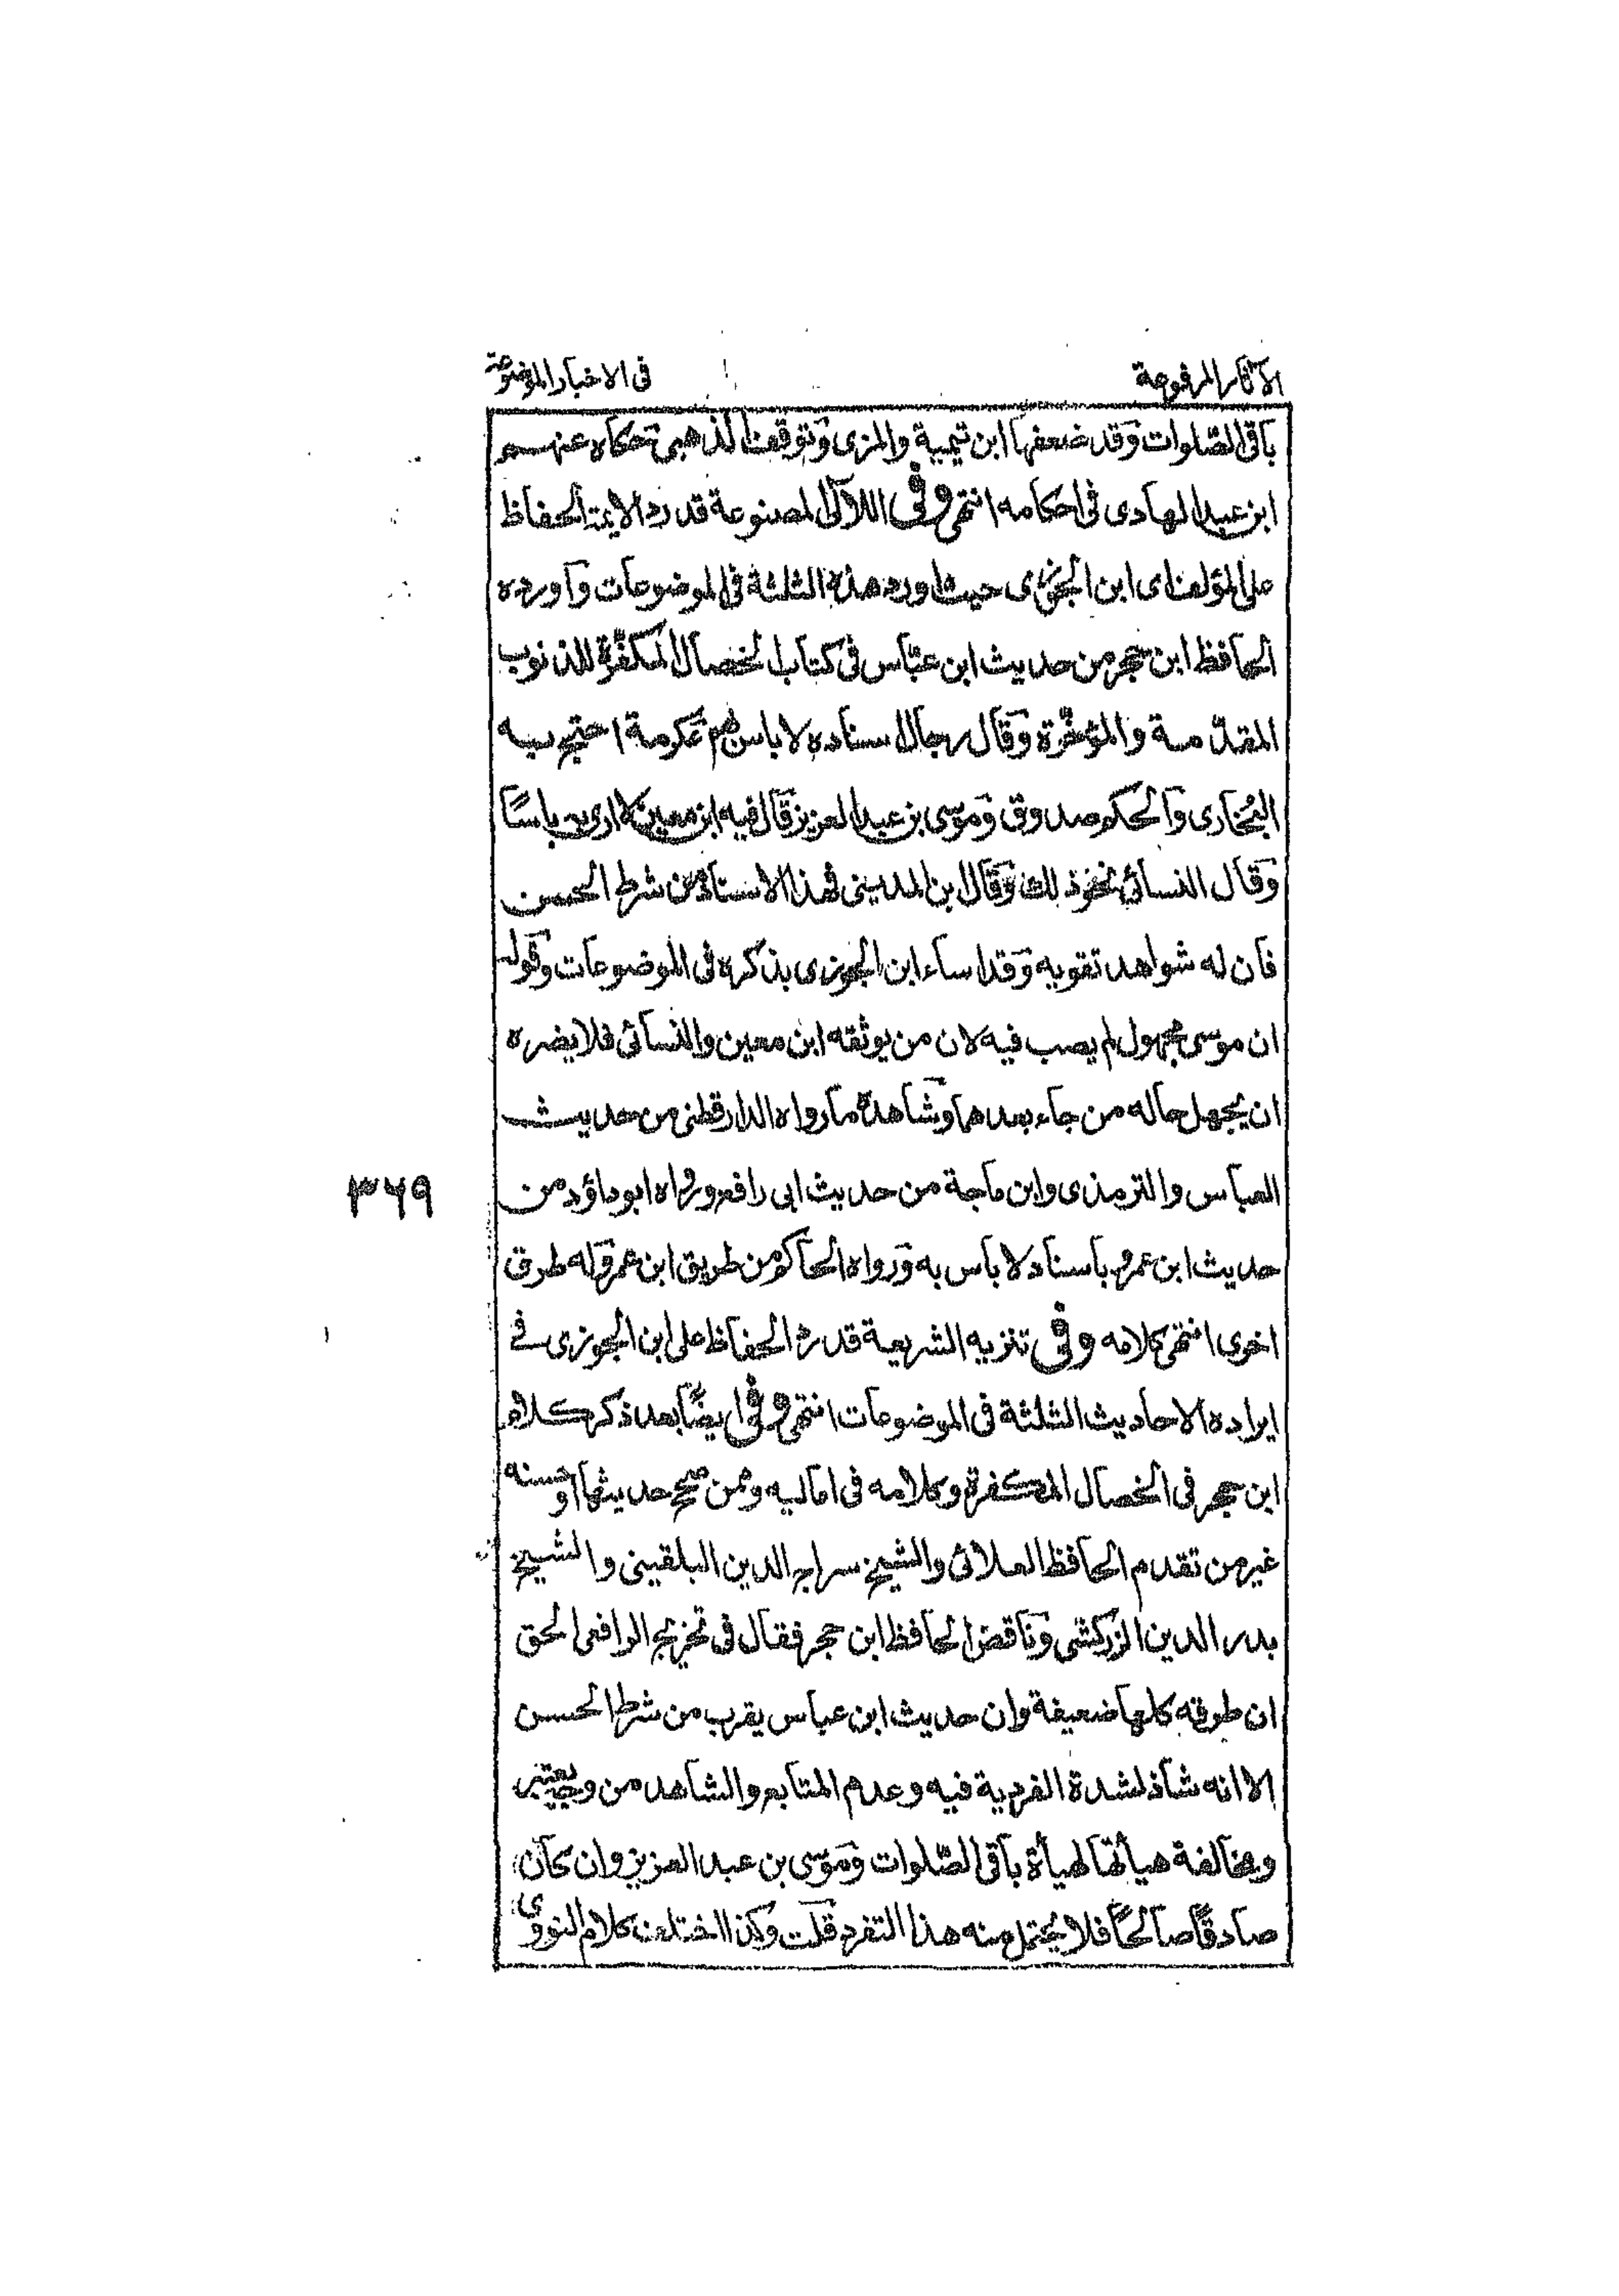 الآثار المرفوعة
فى الاخبار الموضوعة
باقى الصّلوات وقد ضعفها ابن تيمية والمزى وتوقف الذهبى حكاه عنهم
ابن عبد الهادى فى احكامه انتهى وفى اللآلى المصنوعة قد رد الايمة الحفاظ
على المؤلف اى ابن الجوزى حيث اورد هذه الثلثة فى الموضوعات واورده
الحافظ ابن حجر من حديث ابن عبّاس فى كتاب الخصال المكفّرة للذنوب
المقدّمة والمؤخّرة وقال رجال اسناده لا باس بهم عكرمة احتج به
البُخارى والحكم صدوق وموسى بن عبد العزيز قال فيه ابن معين لا ارى به باسًا
وقال النسائى نحو ذلك وقال ابن المدينى فهذا الاسناد من شرط الحسن
فان له شواهد تقويه وقد اساء ابن الجوزى بذكره فى الموضوعات وقوله
ان موسى مجهول لم يصب فيه لان من يوثقه ابن معين والنسائى فلا يضره
ان يجهل حاله من جاء بعدهما وشاهده ما رواه الدارقطنى من حديث
العباس والترمذى وابن ماجة من حديث ابى رافع ورواه ابو داؤد من
٣٦٩
حديث ابن عمرو باسناد لا باس به ورواه الحاكم من طريق ابن عمر وله طرق
اخرى انتهى كلامه وفى تنزيه الشريعة قد رد الحفاظ على ابن الجوزى فى
ايراده الاحاديث الثلثة فى الموضوعات انتهى وفى ايضًا بعد ذكر كلام
ابن حجر فى الخصال المكفرة وكلامه فى اماليه وممن صحح حديثها او حسنه
غير من تقدم الحافظ العلائى والشيخ سراج الدين البلقينى والشيخ
بدر الدين الزركشى وناقض الحافظ ابن حجر فقال فى تخريج الرافعى الحق
ان طرقه كلها ضعيفة وان حديث ابن عباس يقرب من شرط الحسن
الا انه شاذ لشدة الفردية فيه وعدم المتابع والشاهد من وجه يعتبر
ومخالفة هيأتها لهيأة باقى الصّلوات وموسى بن عبد العزيز وان كان
صادقًا صالحًا فلا يحتمل منه هذا التفرد قلت وكذا اختلف كلام النووى